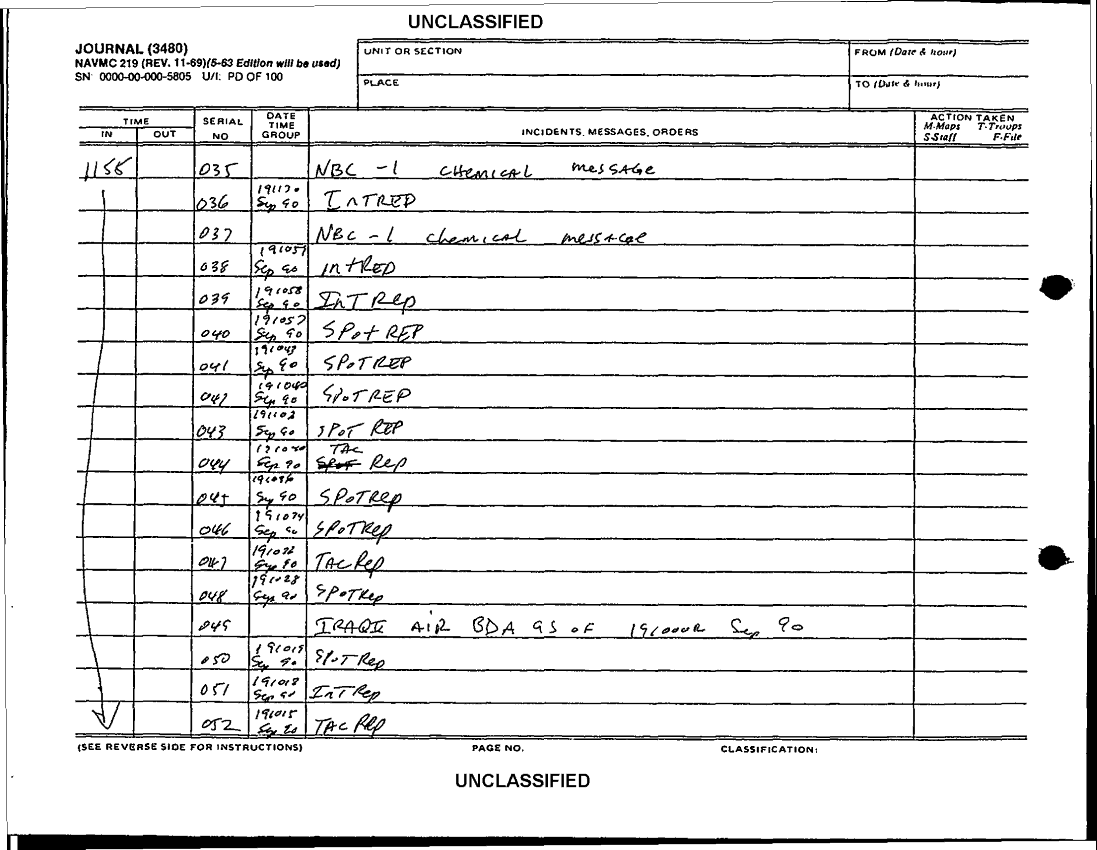 UNCLASSIFIED
JOURNAL (3480)
NAVMC 219 (REV. 11-69)(5-63 Edition will be used)
SN: 0000-00-000-5805 U/I: PD OF 100
UNIT OR SECTION
FROM (Date & hour)
PLACE
TO (Date & hour)
TIME
IN OUT
SERIAL NO
DATE TIME GROUP
INCIDENTS, MESSAGES, ORDERS
ACTION TAKEN
M-Maps T-Troops
S-Staff F-File
1155 035 NBC -1 CHEMICAL MESSAGE
036 Sep 90 INTREP
037 NBC -1 chemical message
038 191057 Sep 90 INTREP
039 191058 Sep 90 INTRep
040 191057 Sep 90 SPotREP
041 191043 Sep 90 SPoTREP
042 191040 Sep 90 SPoTREP
043 191102 Sep 90 SPoT REP
044 Sep 90 SPOT TAC Rep
045 Sep 90 SPoTRep
046 Sep 90 SPoTRep
047 Sep 90 TACRep
048 191028 Sep 90 SPoTRep
049 IRAQI AIR BDA as of 191000R Sep 90
050 191019 Sep 90 SPoTRep
051 191018 Sep 90 InTRep
052 191015 Sep 90 TACRep
(SEE REVERSE SIDE FOR INSTRUCTIONS) PAGE NO. CLASSIFICATION:
UNCLASSIFIED